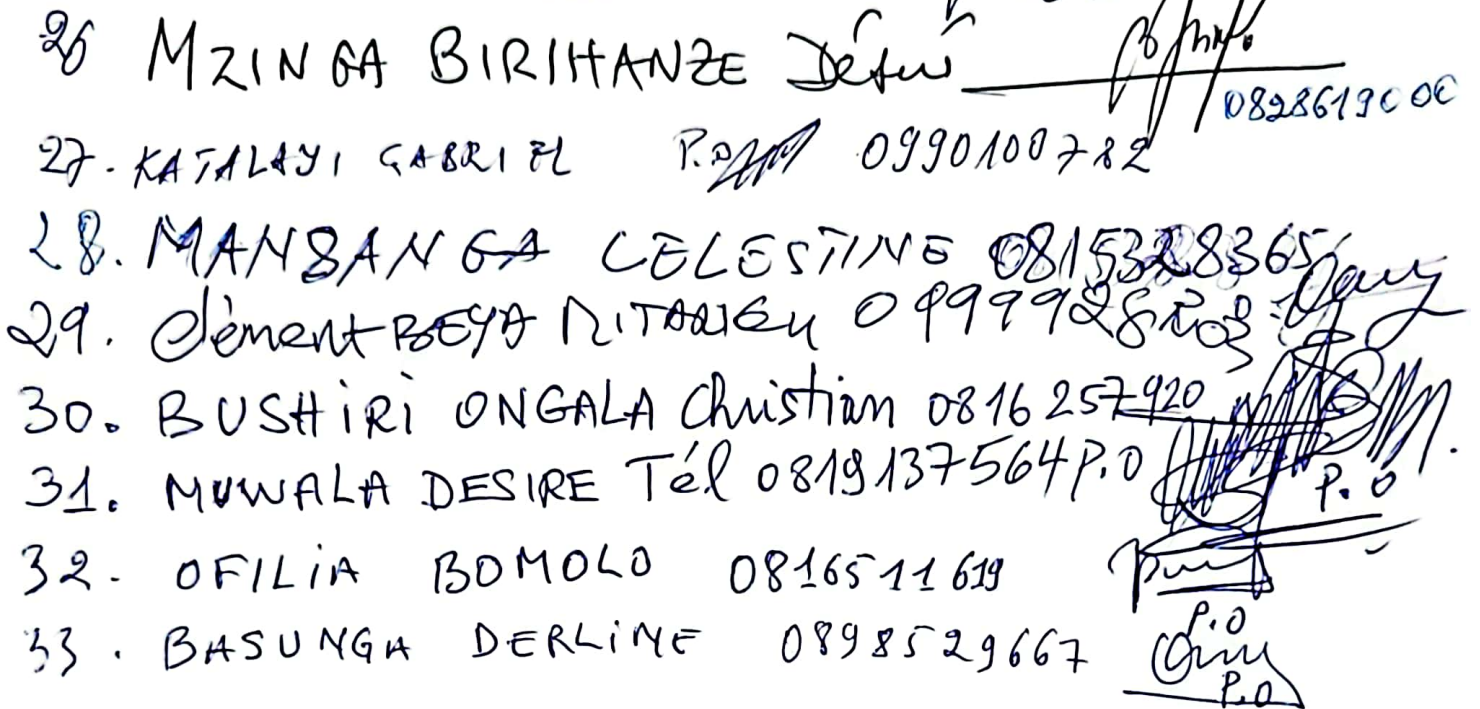 26 MZINGA BIRIHANZE Désiré
27. KATALAYI GABRIEL P.O 0990100782
28. MANSANGA CELESTINE 0815328365
29. Clément BEYA
30. BUSHIRI ONGALA Christian 0816257920
31. MUWALA DESIRE Tél 0819137564 P.O
P.O
32. OFILIA BOMOLO 0816511619
P.O
33. BASUNGA DERLINE 0898529667
P.O